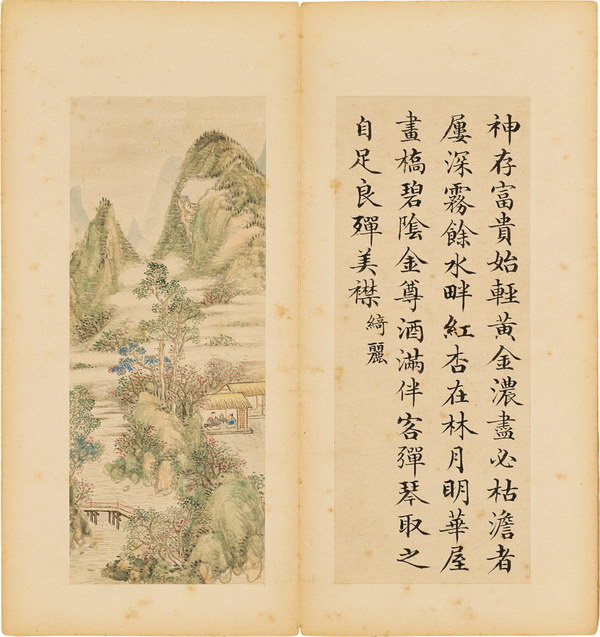 神存富貴始輕黃金濃盡必枯澹者
屢深霧餘水畔紅杏在林月明華屋
畫橋碧陰金尊酒滿伴客彈琴取之
自足良殫美襟 綺麗